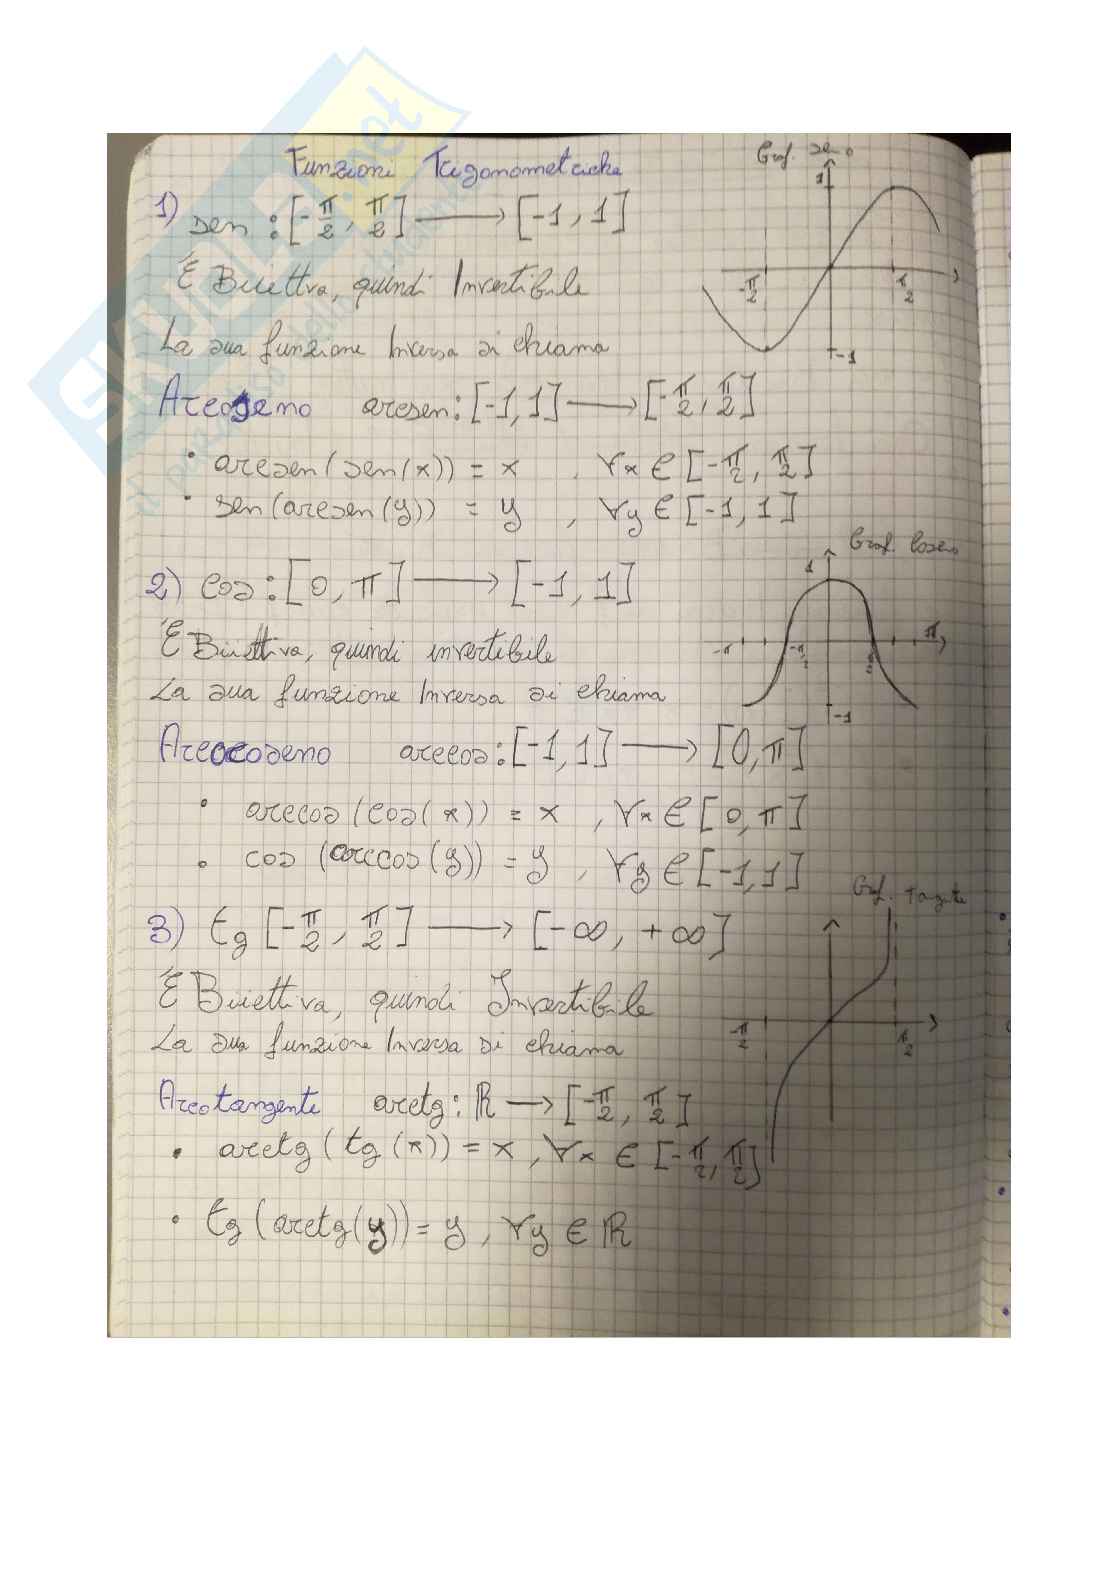 Funzioni Trigonometriche
Graf. seno
1) sen : [-π/2, π/2] ⟶ [-1, 1]
1
-π/2
π/2
-1
È Biiettiva, quindi Invertibile
La sua funzione Inversa si chiama
Arcoseno arcsen: [-1,1] ⟶ [-π/2, π/2]
• arcsen(sen(x)) = x , ∀x ∈ [-π/2, π/2]
• sen(arcsen(y)) = y , ∀y ∈ [-1, 1]
Graf. Coseno
2) cos : [0, π] ⟶ [-1, 1]
1
-π
-π/2
π/2
π
-1
È Biiettiva, quindi invertibile
La sua funzione Inversa si chiama
Arcocoseno arccos: [-1,1] ⟶ [0,π]
• arccos(cos(x)) = x , ∀x ∈ [0,π]
• cos (arccos(y)) = y , ∀y ∈ [-1,1]
Graf. Tangente
3) tg [-π/2, π/2] ⟶ [-∞, +∞]
-π/2
π/2
È Biiettiva, quindi Invertibile
La sua funzione Inversa si chiama
Arcotangente arctg: ℝ ⟶ [-π/2, π/2]
• arctg(tg(x)) = x , ∀x ∈ [-π/2, π/2]
• tg(arctg(y)) = y , ∀y ∈ ℝ
SKUOLA.net